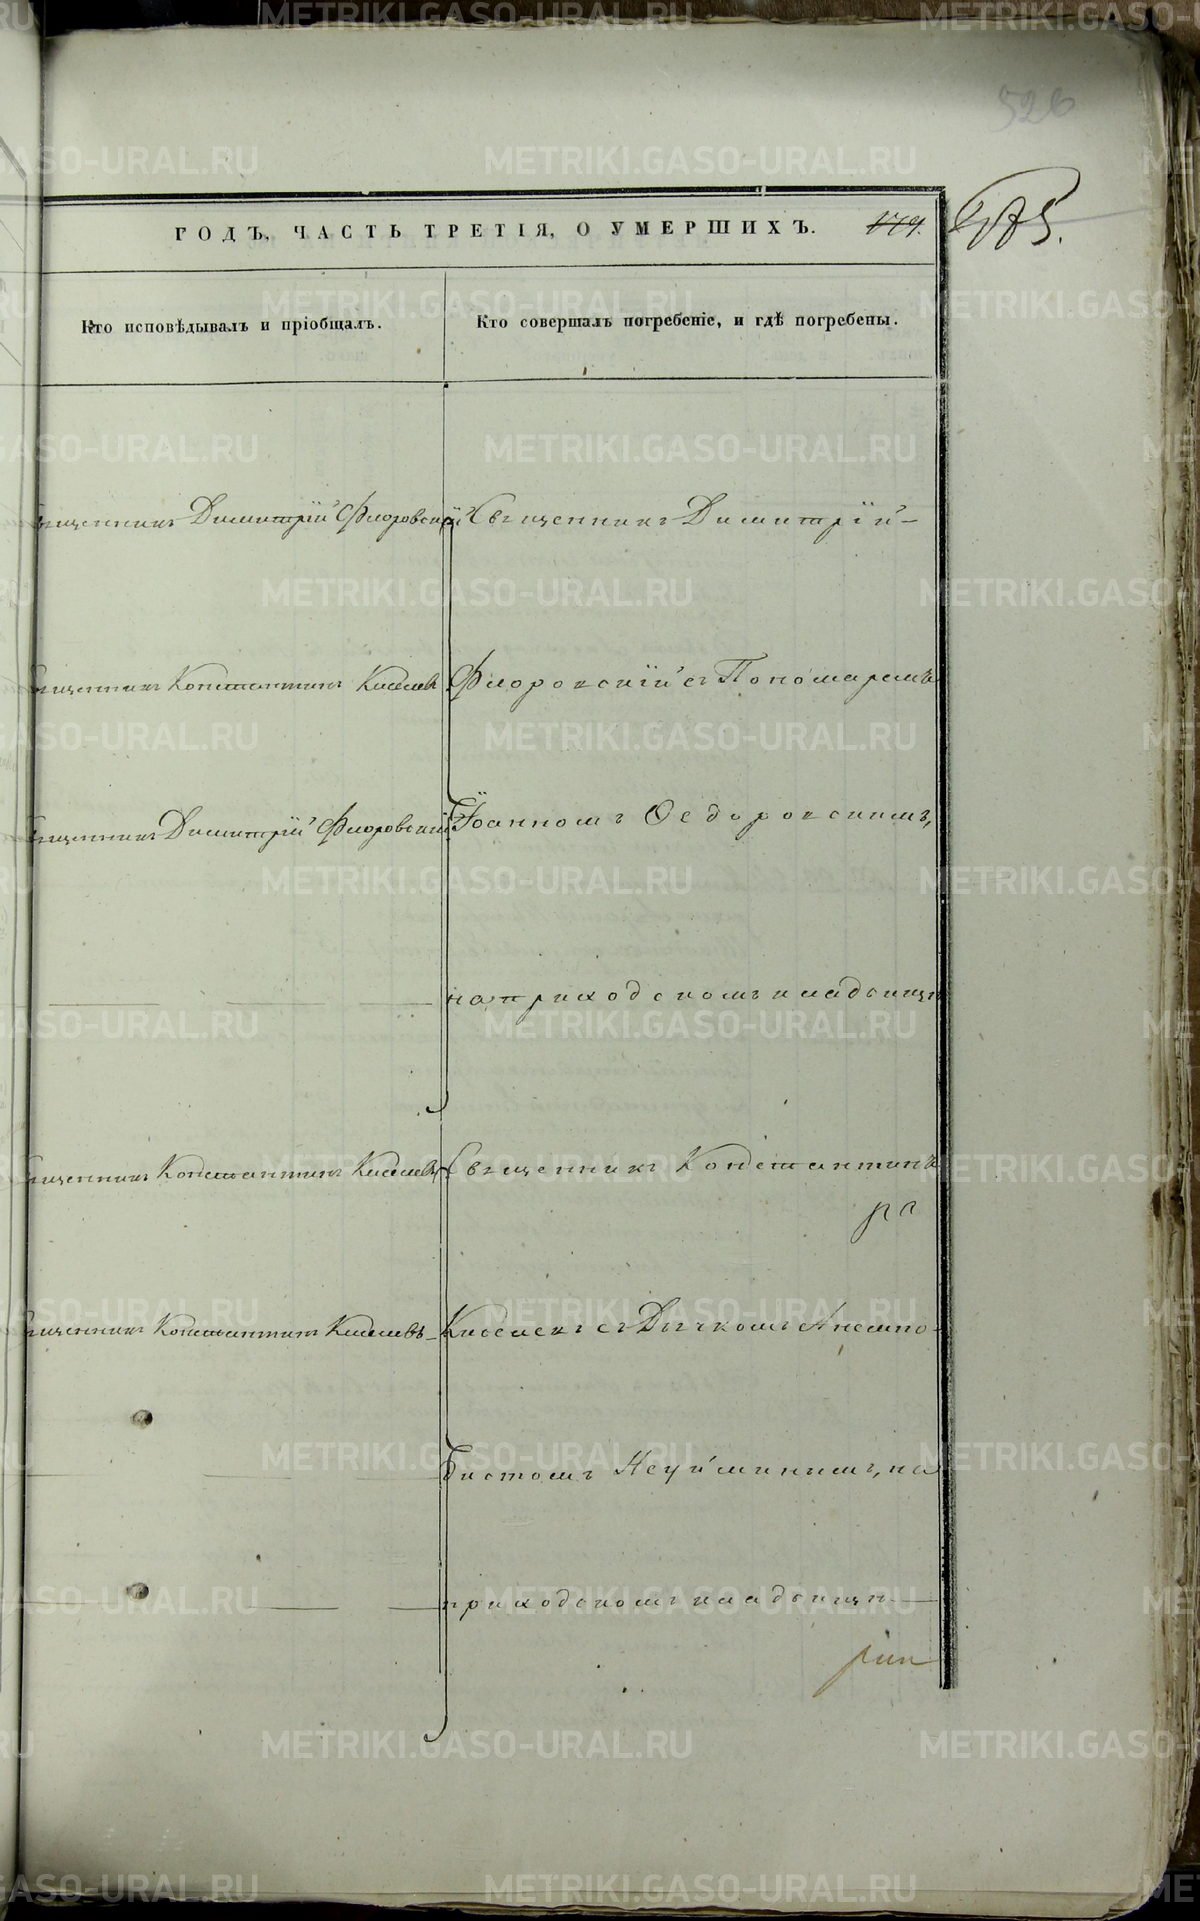 526
ГОДЪ, ЧАСТЬ ТРЕТІЯ, О УМЕРШИХЪ.
Кто исповѣдывалъ и пріобщалъ.
Кто совершалъ погребеніе, и гдѣ погребены.
Священникъ Димитрій Флоровскій
Священникъ Димитрій
Священникъ Константинъ Киселевъ
Флоровскій съ Пономаремъ
Священникъ Димитрій Флоровскій
Іоанномъ Ѳедоровскимъ,
на приходскомъ кладбищѣ
Священникъ Константинъ Киселевъ
Священникъ Константинъ
Священникъ Константинъ Киселевъ
Киселевъ съ Дьячкомъ Анемпо-
дистомъ Неуйминимъ, на
приходскомъ кладбищѣ
METRIKI.GASO-URAL.RU